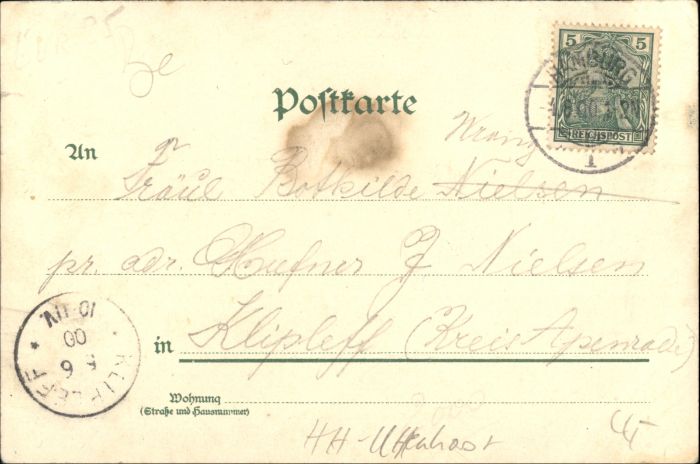 5 5
HAMBURG
1
REICHSPOST
Postkarte
An
Fräul Bothilde Nielsen
pr. adr. Hufner J. Nielsen
in Klipleff (Kreis Apenrade)
KLIPLEFF
5 6
00
10-11V.
Wohnung
(Straße und Hausnummer)